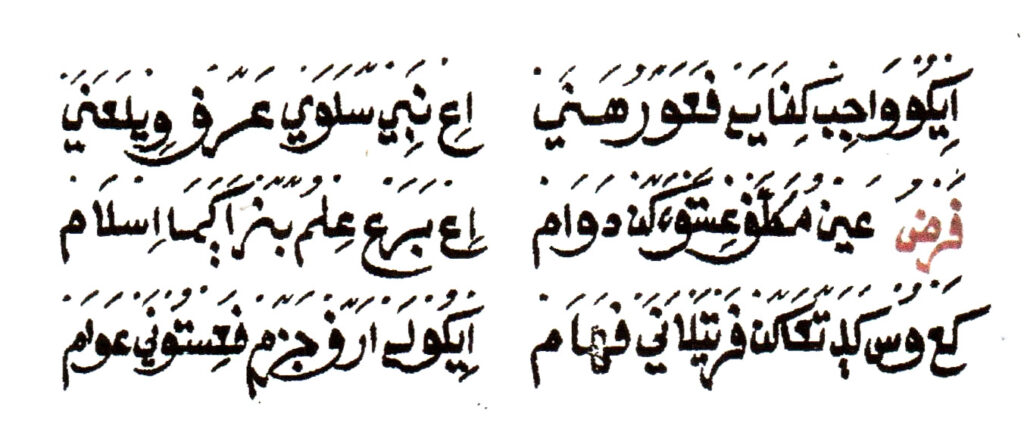 اِيكُو وَاجِب كِفَايَة فَڠَوَرُهَنَي اِڠ نَبِي سَلَوَي عَرَف وِيلَڠَنَي
فَرْضُ عَين مُكَلَّف ڠِسْتَوكن دَوَام اِڠ بَرَڠ عِلْمُ بنر اَكَمَا اِسْلَام
كڠ وُس كَدِ تڠاكن فرتيلاني فَهَام اِيكُولَي اَرَف جَزم فَڠِستُوني عَوَام